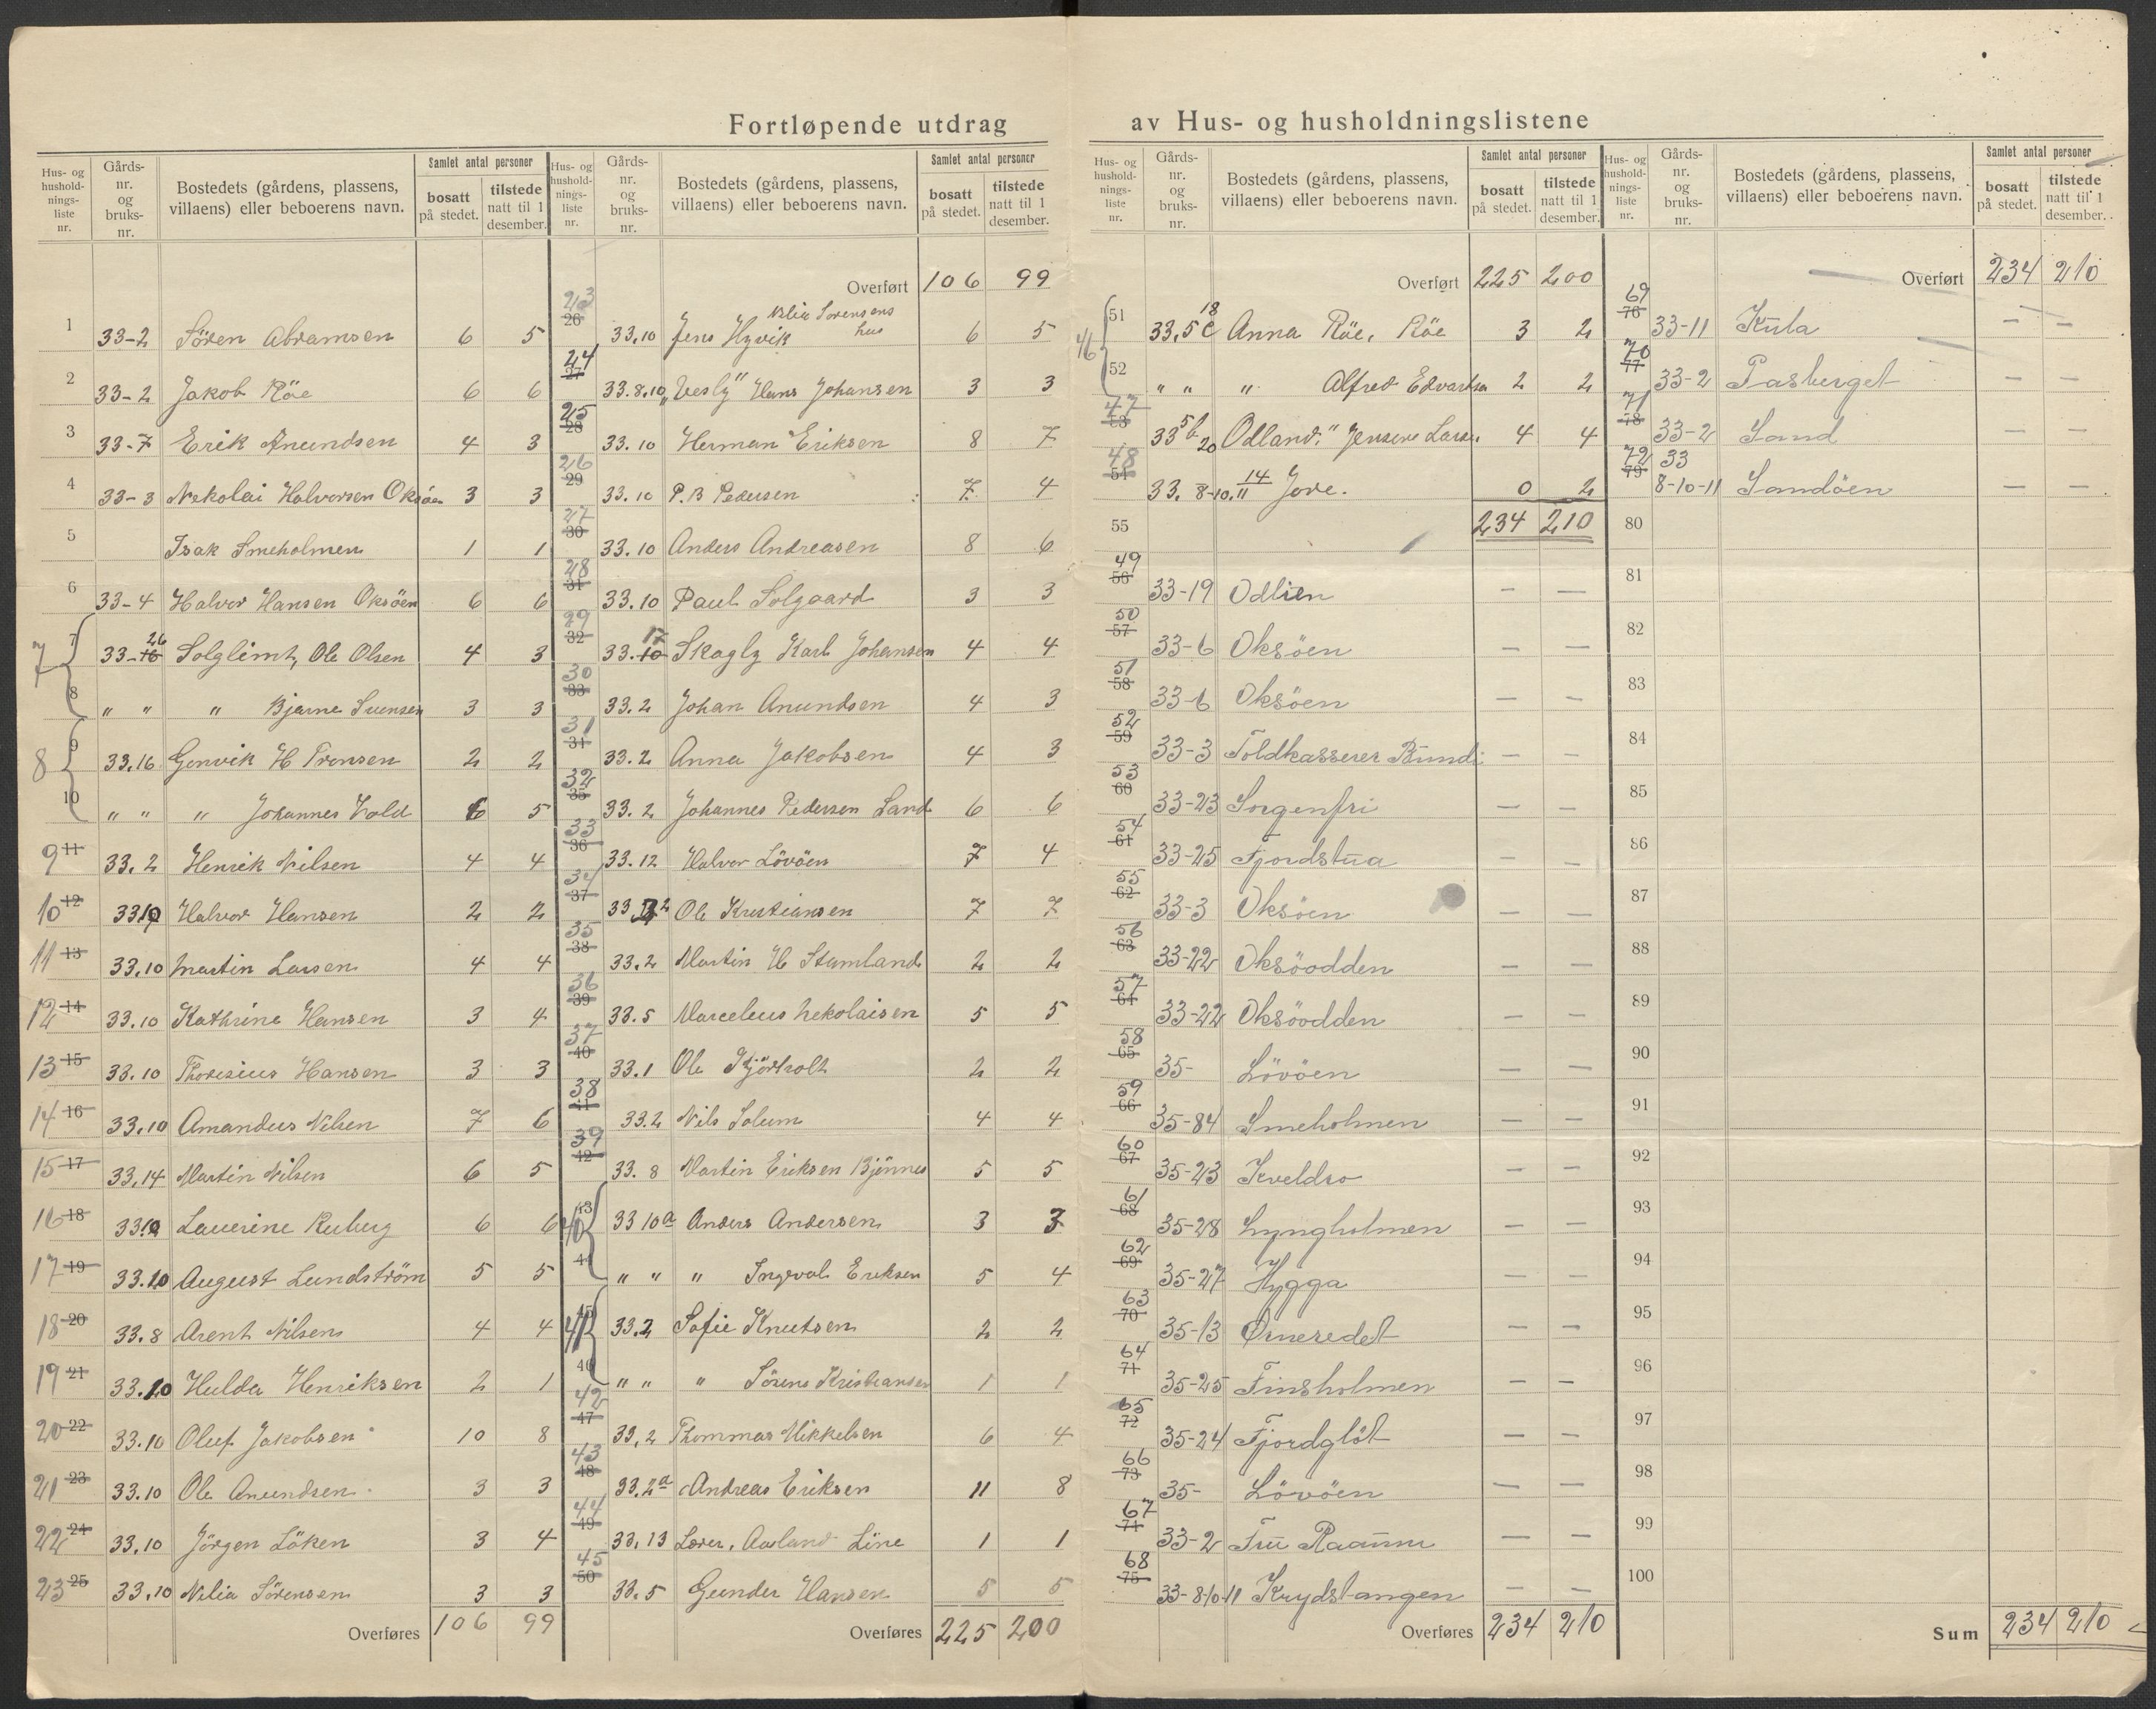 Fortløpende utdrag av Hus- og husholdningslistene
Hus- og husholdningsliste nr. | Gårds-nr. og bruks-nr. | Bostedets (gårdens, plassens, villaens) eller beboerens navn. | Samlet antal personer | bosatt på stedet. | tilstede natt til 1 desember.
1 33-2 Sören Abramsen 6 5
2 33-2 Jakob Röe 6 6
3 33-7 Erik Anundsen 4 3
4 33-3 Nekolai Halvorsen Oksöen 3 3
5 Isak Smeholmen 1 1
6 33-4 Halvor Hansen Oksöen 6 6
7 7 33-16 26 Solglimt, Ole Olsen 4 3
8 " " " Bjarne Svensen 3 3
8 9 33.16 Genvik H Fransen 2 2
10 " " " Johannes Wold 6 5
9 11 33.2 Henrik Nilsen 4 4
10 12 33 10 Halvor Hansen 2 2
11 13 33.10 Martin Larsen 4 4
12 14 33.10 Kathrine Hansen 3 4
13 15 33.10 Thoresius Hansen 3 3
14 16 33.10 Amandus Nilsen 7 6
15 17 33.14 Martin Nilsen 6 5
16 18 33.10 Laurine Ruberg 6 6
17 19 33.10 August Lundström 5 5
18 20 33.8 Arent Nilsen 4 4
19 21 33.10 Hulda Henriksen 2 1
20 22 33.10 Oluf Jakobsen 10 8
21 23 33.10 Ole Anundsen 3 3
22 24 33.10 Jörgen Löken 3 4
23 25 33.10 Nilia Sörensen 3 3
Overføres 106 99
Hus- og husholdningsliste nr. | Gårds-nr. og bruks-nr. | Bostedets (gårdens, plassens, villaens) eller beboerens navn. | Samlet antal personer | bosatt på stedet. | tilstede natt til 1 desember.
Overført 106 99
23 26 33.10 Jens Hyvik Nilia Sorensens hus 6 5
24 27 33.8.10 "Vesly" Hans Johansen 3 3
25 28 33.10 Herman Eriksen 8 7
26 29 33.10 P.B Pedersen 7 4
27 30 33.10 Anders Andreasen 8 6
28 31 33.10 Paul Solgaard 3 3
29 32 33.10 17 Skogly Karl Johansen 4 4
30 33 33.2 Johan Anundsen 4 3
31 34 33.2 Anna Jakobsen 4 3
32 35 33.2 Johannes Pedersen Sand 6 6
33 36 33.12 Halvor Lövöen 7 4
34 37 33 2 Ole Kristiansen 7 7
35 38 33.2 Martin H Stamland 2 2
36 39 33.5 Marcelius Nekolaisen 5 5
37 40 33.1 Ole Kjörholt 2 2
38 41 33.2 Nils Solum 4 4
39 42 33.8 Martin Eriksen Bjönnes 5 5
40 43 33 10a Anders Andersen 3 3
44 " " " Ingvald Eriksen 5 4
41 45 33.2 Sofie Knutsen 2 2
46 " " " Sörene Kristiansen 1 1
42 47 33.2 Thommas Mikkelsen 6 4
43 48 33.2a Andreas Eriksen 11 8
44 49 33.13 Lærer. Aasland Line 1 1
45 50 33.5 Gunder Hansen 5 5
Overføres 225 200
Hus- og husholdningsliste nr. | Gårds-nr. og bruks-nr. | Bostedets (gårdens, plassens, villaens) eller beboerens navn. | Samlet antal personer | bosatt på stedet. | tilstede natt til 1 desember.
Overført 225 200
46 51 33.5 c 18 Anna Röe, Röe 3 2
52 " " " Alfred Edvartsen 2 2
47 53 33 5b 20 Odland." Jensine Larsen 4 4
48 54 33. 8-10.11 14 Jore. 0 2
55 234 210
49 56 33-19 Odlien — —
50 57 33-6 Oksöen — —
51 58 33-6 Oksöen — —
52 59 33-3 Toldkasserer Bundi — —
53 60 33-23 Sorgenfri — —
54 61 33-25 Fjordstua — —
55 62 33-3 Oksöen — —
56 63 33-22 Oksöodden — —
57 64 33-22 Oksöodden — —
58 65 35- Lövöen — —
59 66 35-84 Smeholmen — —
60 67 35-23 Kveldro — —
61 68 35-28 Lyngholmen — —
62 69 35-27 Hygga — —
63 70 35-13 Örneredet — —
64 71 35-25 Finsholmen — —
65 72 35-24 Fjordglöt — —
66 73 35- Lövöen — —
67 74 33-2 Fru Raaum — —
68 75 33-8-10-11 Krydstangen — —
Overføres 234 210
Hus- og husholdningsliste nr. | Gårds-nr. og bruks-nr. | Bostedets (gårdens, plassens, villaens) eller beboerens navn. | Samlet antal personer | bosatt på stedet. | tilstede natt til 1 desember.
Overført 234 210
69 76 33-11 Kula — —
70 77 33-2 Pasberget — —
71 78 33-2 Sand — —
72 79 33 8-10-11 Sandöen — —
80
81
82
83
84
85
86
87
88
89
90
91
92
93
94
95
96
97
98
99
100
Sum 234 210